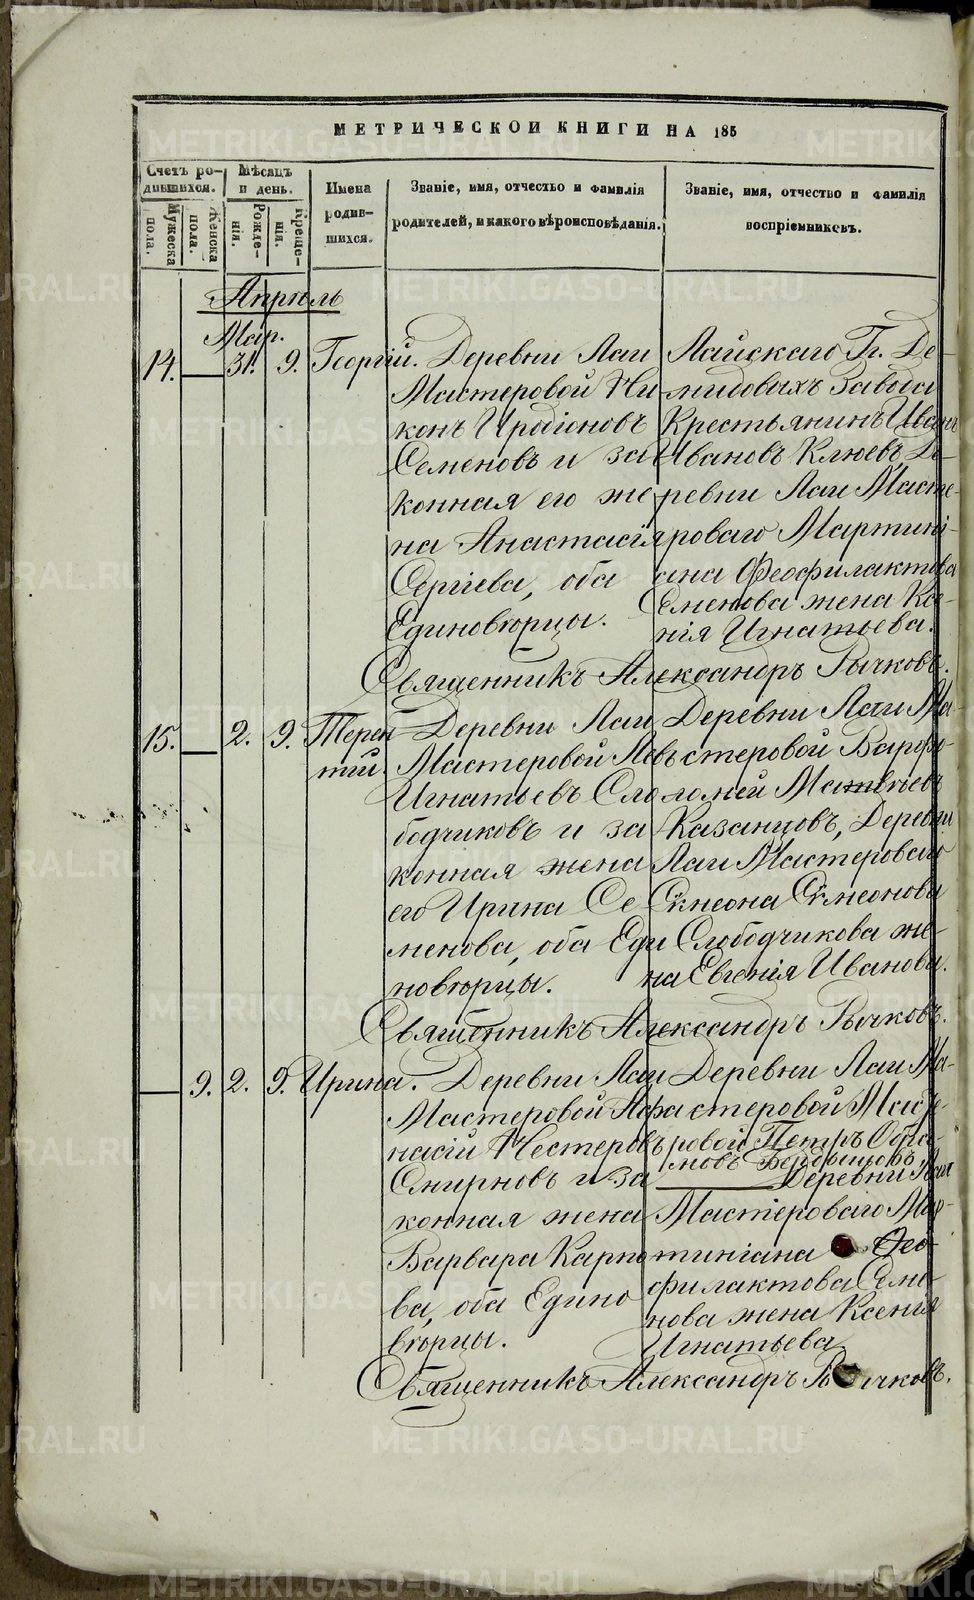 МЕТРИЧЕСКОЙ КНИГИ НА 185
Счетъ ро-
дившихся.
Мѣсяцъ
и день.
Имена
родив-
шихся.
Званіе, имя, отчество и фамилія
родителей, и какого вѣроисповѣданія.
Званіе, имя, отчество и фамилія
воспріемниковъ.
Мужеска
пола.
Женска
пола.
Рожде-
нія.
Креще-
нія.
Апрѣль
Мар.
14. 31. 9. Георгій.
Деревни Лаи
Мастеровой Ни-
конъ Иродіоновъ
Семеновъ и за
конная его же
на Анастасія
Сергіева, оба
Единовѣрцы.
Лайскаго Гг. Де-
мидовыхъ Завода
Крестьянинъ Иванъ
Ивановъ Клюевъ, Де-
ревни Лаи Масте-
роваго Мартині-
ана Феофилактова
Семенова жена Ксе-
нія Игнатьева.
Священникъ Александръ Рычковъ.
15. 2. 9. Терен
тій.
Деревни Лаи
Мастеровой Левъ
Игнатьевъ Сло
бодчиковъ и за
конная жена
его Ирина Се
менова, оба Еди
новѣрцы.
Деревни Лаи Ма-
стеровой Варфо-
ломей Матвѣевъ
Казанцовъ, Деревни
Лаи Мастероваго
Симеона Симеонова
Слободчикова же-
на Евгенія Иванова.
Священникъ Александръ Рычковъ.
9. 2. 9. Ирина.
Деревни Лаи
Мастеровой Афа
насій Нестеровъ
Смирновъ и за
конная жена
Варвара Карпо
ва, оба Едино
вѣрцы.
Деревни Лаи Ма-
стеровой
Петръ
Деревни Лаи
Мастероваго Мар-
тиніана Фео-
филактова Семе-
нова жена Ксенія
Игнатьева
Священникъ Александръ Рычковъ.
METRIKI.GASO-URAL.RU